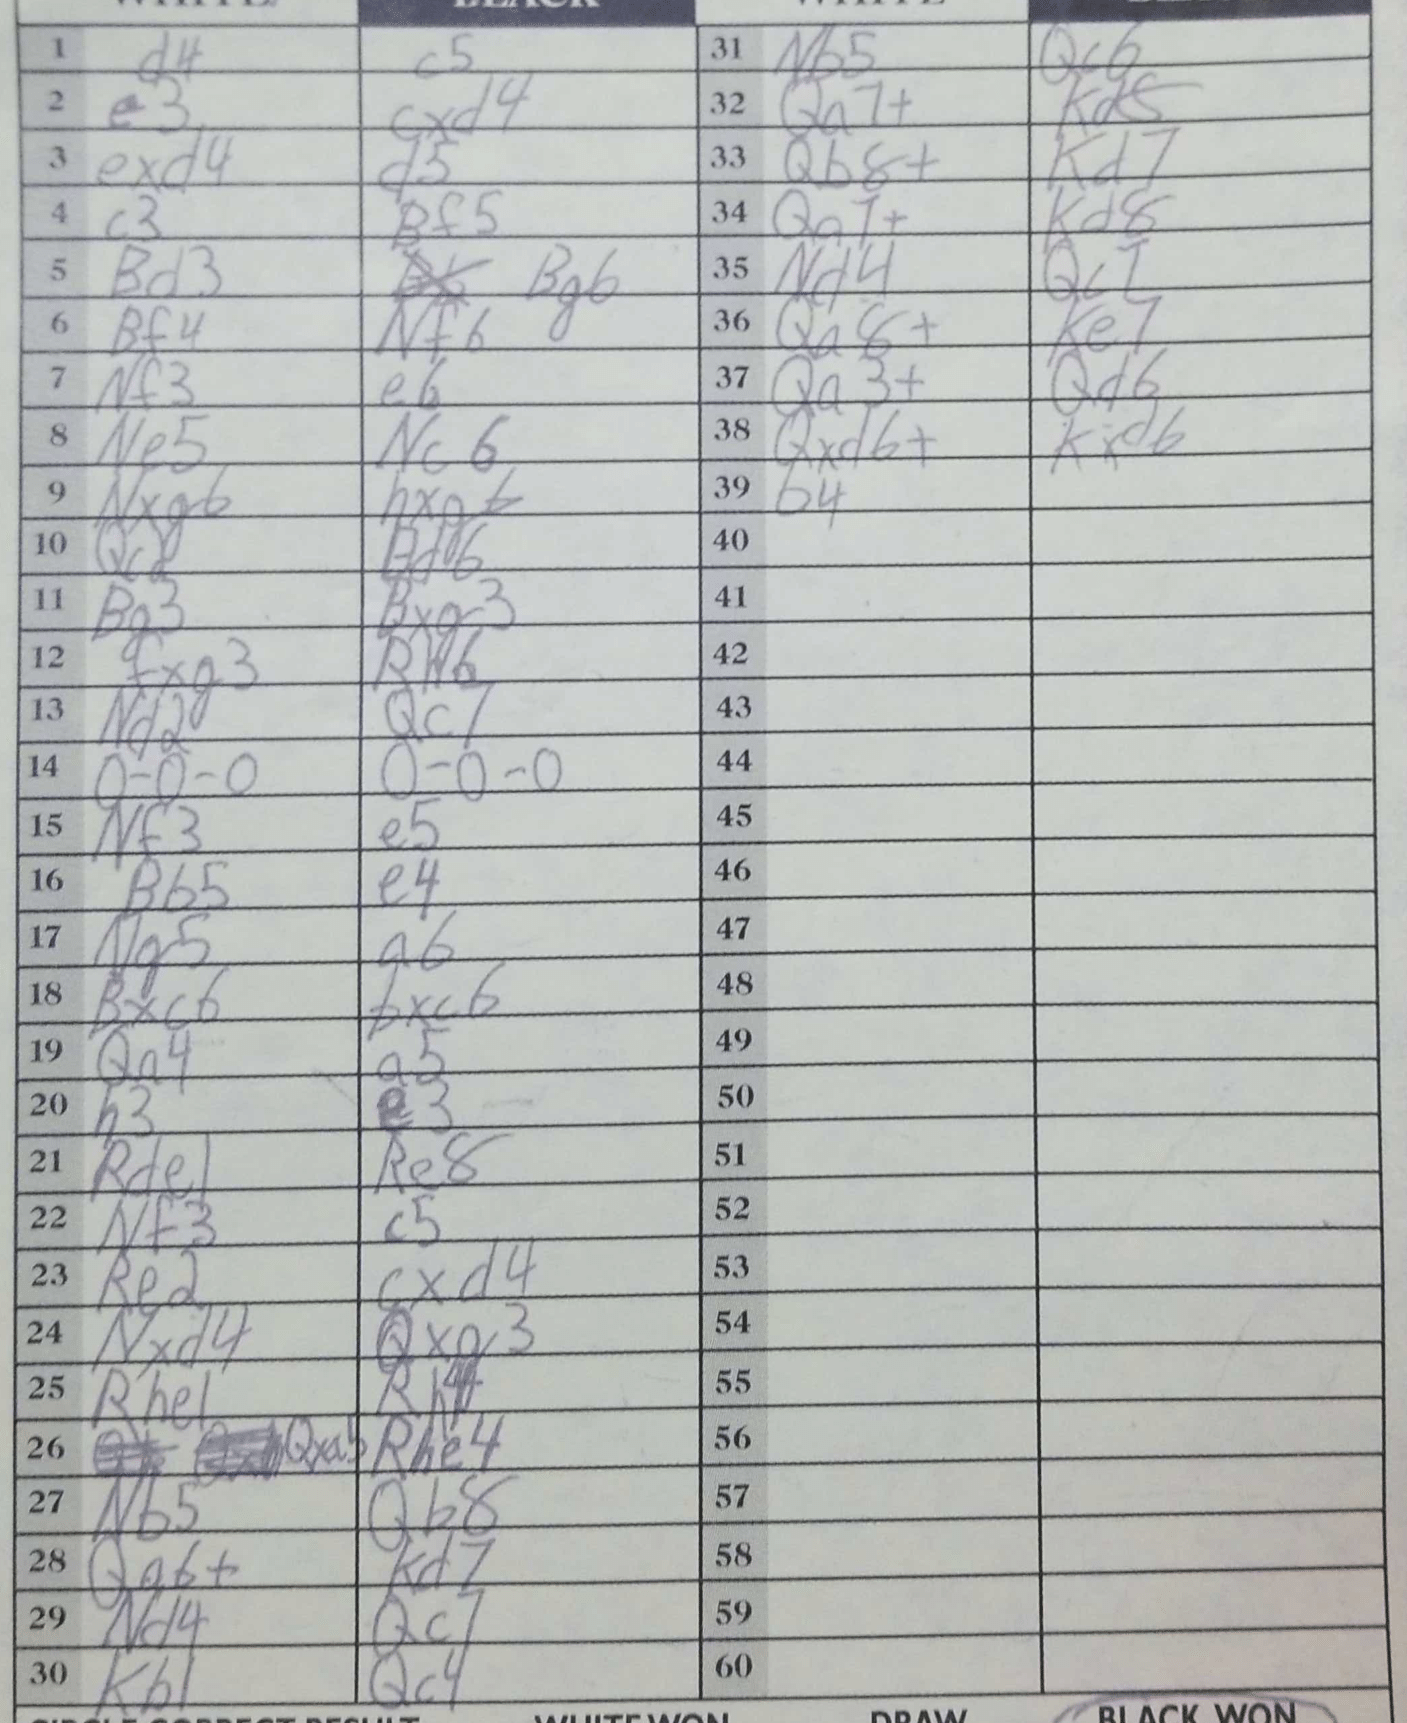 WHITE BLACK WHITE
1 d4 c5 31 Nb5 Qc6
2 e3 cxd4 32 Qa7+ Kd8
3 exd4 d5 33 Qb8+ Kd7
4 c3 Bf5 34 Qa7+ Kd8
5 Bd3 Bg6 35 Nd4 Qc7
6 Bf4 Nf6 36 Qa8+ Ke7
7 Nf3 e6 37 Qa3+ Qd6
8 Ne5 Nc6 38 Qxd6+ Kxd6
9 Nxg6 hxg6 39 b4
10 Qc2 Bd6 40
11 Bg3 Bxg3 41
12 fxg3 Rh6 42
13 Nd2 Qc7 43
14 0-0-0 0-0-0 44
15 Nf3 e5 45
16 Bb5 e4 46
17 Ng5 a6 47
18 Bxc6 bxc6 48
19 Qa4 a5 49
20 h3 e3 50
21 Rde1 Re8 51
22 Nf3 c5 52
23 Re2 cxd4 53
24 Nxd4 Qxg3 54
25 Rhe1 Rh4 55
26 Qxa5 Rhe4 56
27 Nb5 Qb8 57
28 Qa6+ Kd7 58
29 Nd4 Qc7 59
30 Kb1 Qc4 60
CIRCLE CORRECT RESULT WHITE WON DRAW BLACK WON